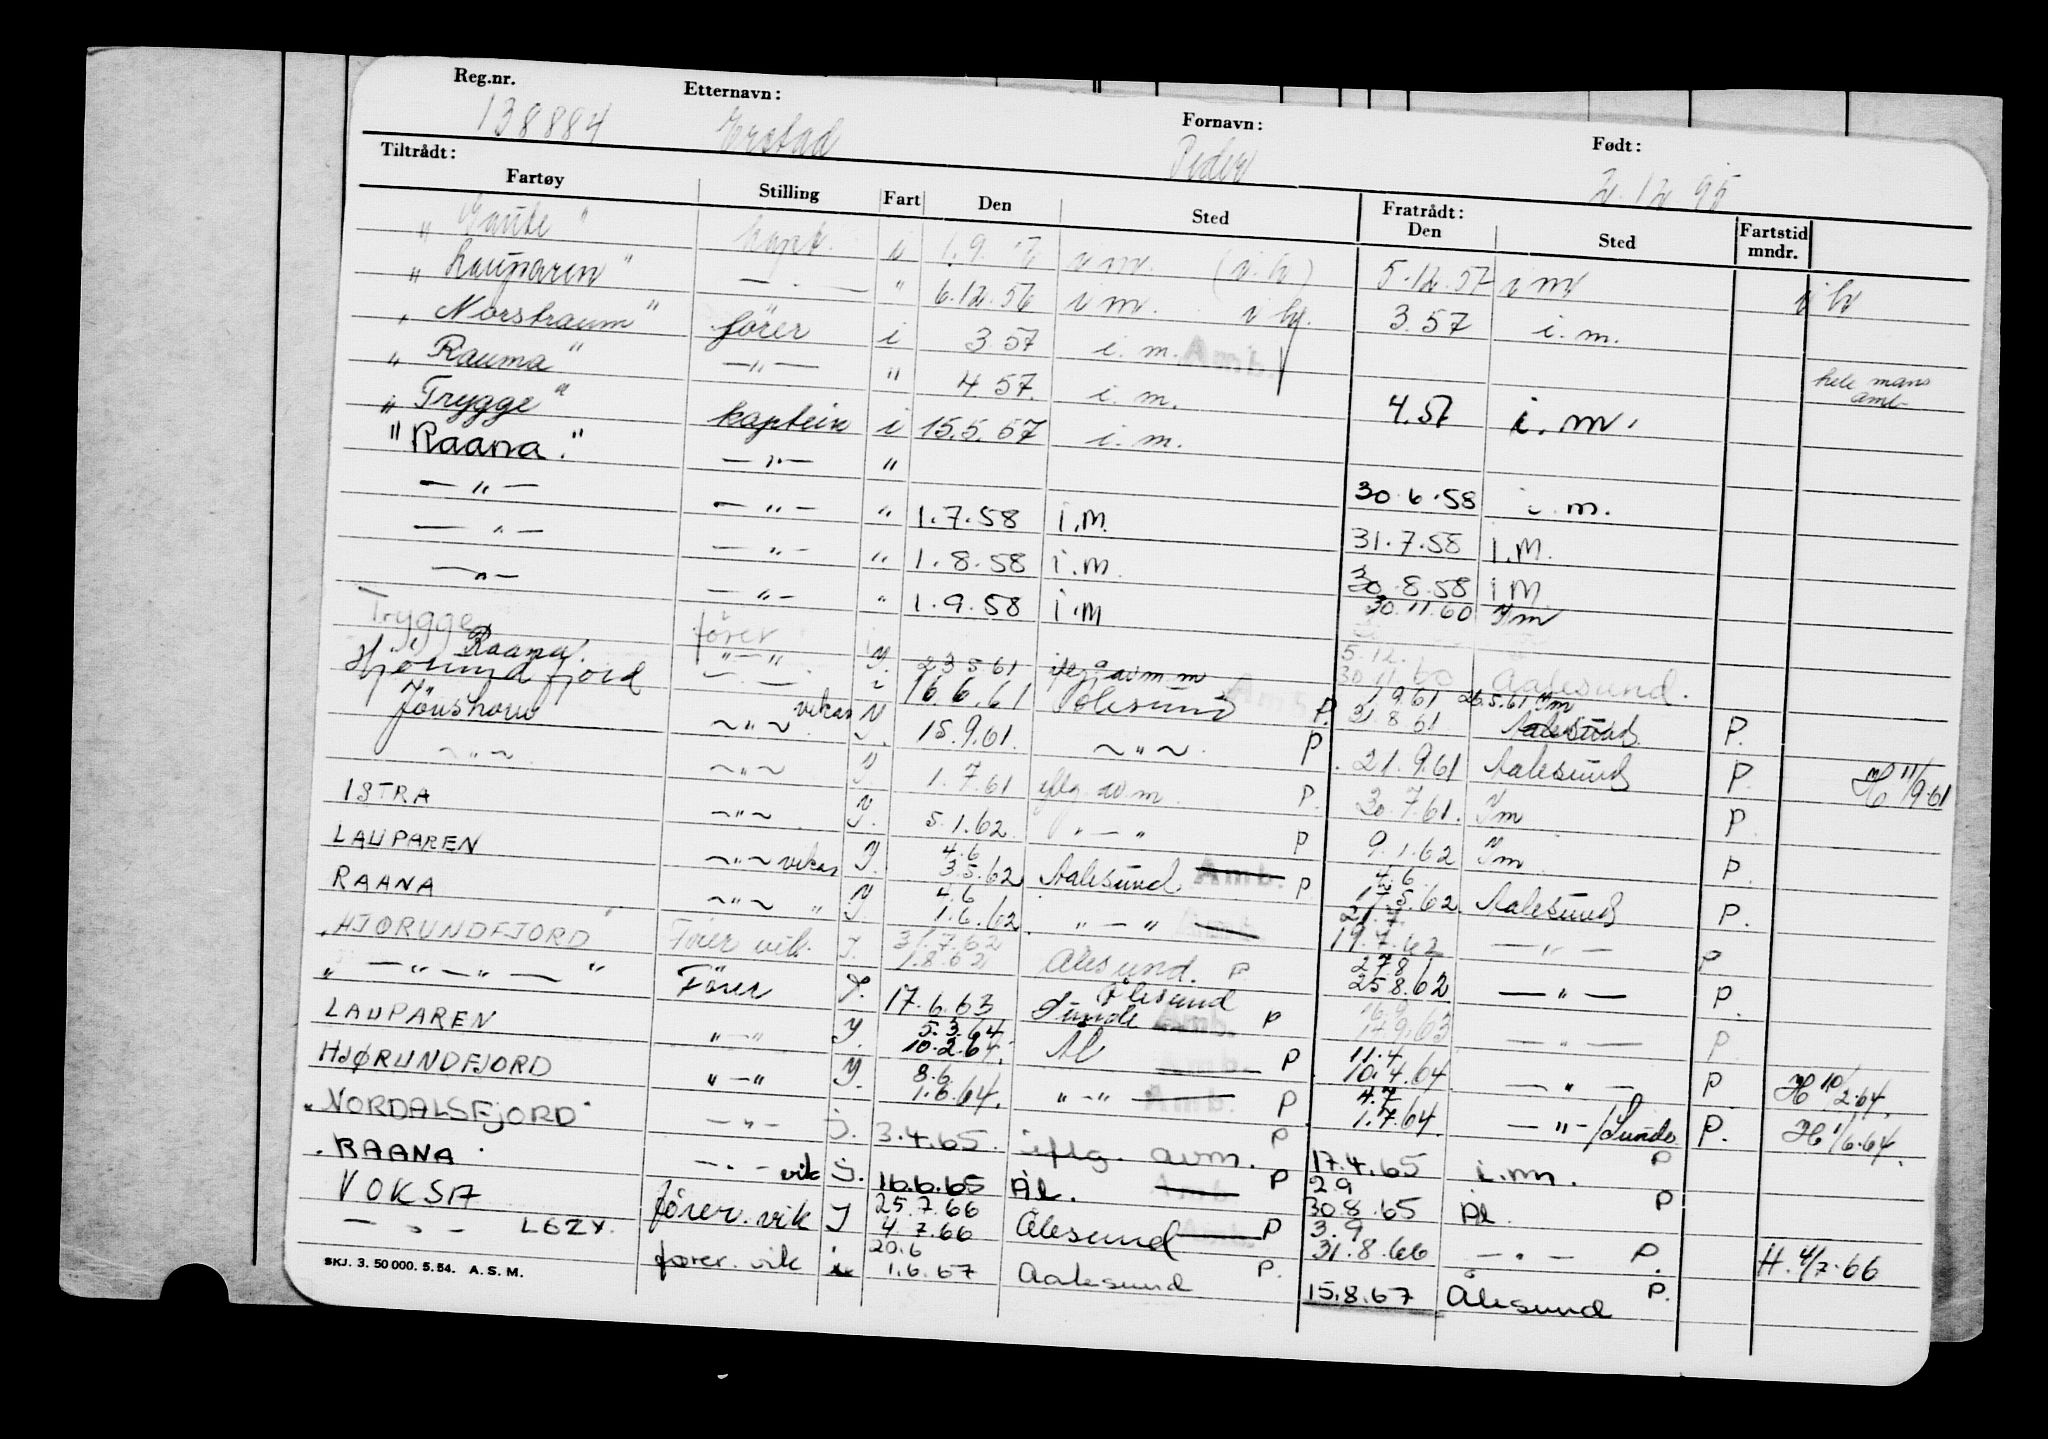 Reg.nr. Etternavn: Fornavn: Født:
138884 Erstad Peder 2.12.95
Tiltrådt: Fratrådt:
Fartøy Stilling Fart Den Sted Den Sted Fartstid mndr.
"Gaute" kapt. i 1.9. i m. 5.12.57 i m
"Lauparen" — . — " 6.12.56 i m. 3 57 i. m.
"Norstraum" fører i 3 57 i. m. Amb.
"Rauma" — " — " 4 57. i. m. 4.57 i. m. hele mans amb
"Trygge" kaptein i 15.5.57 i. m.
"Raana." — " — " 30.6.58 i. m.
— " — — " — " 1.7.58 I.M. 31.7.58 I.M.
— " — — " — " 1.8.58 i.m. 30.8.58 I M
— " — — " — " 1.9.58 i.m 30.11.60 I/m
Trygge fører 5.12. 30.11.60 Aalesund.
Raana. " — " I. 23.5.61 iflg. av m m 26.5.61 I/m
Hjørundfjord — . — i 16.6.61 Ålesund P. 1.9.61 31.8.61 Aalesund P.
Jønshorn ~ " ~ vikar I. 15.9.61. ~ " ~ P . 21.9.61 Aalesund P. H 11/9.61
~ " ~ ~ " ~ I 1.7.61 iflg av m. P. 30.7.61. I/m P.
ISTRA ~ " ~ I. 5.1.62 " — " P 9.1.62 I/m P.
LAUPAREN ~ " ~ vikar I. 4.6 3.5.62 Aalesund Amb. P. 4.6 Aalesund P.
RAANA ~ " ~ " I. 4.6 1.6.62 " — " Amb 19.7.62 — " — P
HJØRUNDFJORD Fører vik. I. 31.7.62 1.8.62 Ålesund. P 27.8 25.8.62 — " — P.
" — " — " — " Fører I. 17.6.63 Ålesund Sunde Amb. P — " — P.
LAUPAREN " — " I. 5.3.64 10.2.64. Ål Amb. P 11.4 10.4.64 — " — P H 10/2.64.
HJØRUNDFJORD " — " I. 8.6 1.6.64. " — " Amb. P 4.7 1.7.64. — " — /Sunde P. H 1/6.64.
"NORDALSFJORD" — " — I. 3.4.65. iflg. avm. P 17.4.65 i.m. P
"RAANA" — . — vik I. 16.6.65 Ål. Amb P 2 9 30.8.65 Ål. P
VOKSA fører. vik I 25.7.66 4.7.66 Ålesund Amb. P 3.9 31.8.66 — . — P. H. 4/7.66
— " — LEZY. fører. vik i 20.6 1.6.67 Aalesund P. 15.8.67 Ålesund P.
SKJ. 3. 50 000. 5. 54. A. S. M.